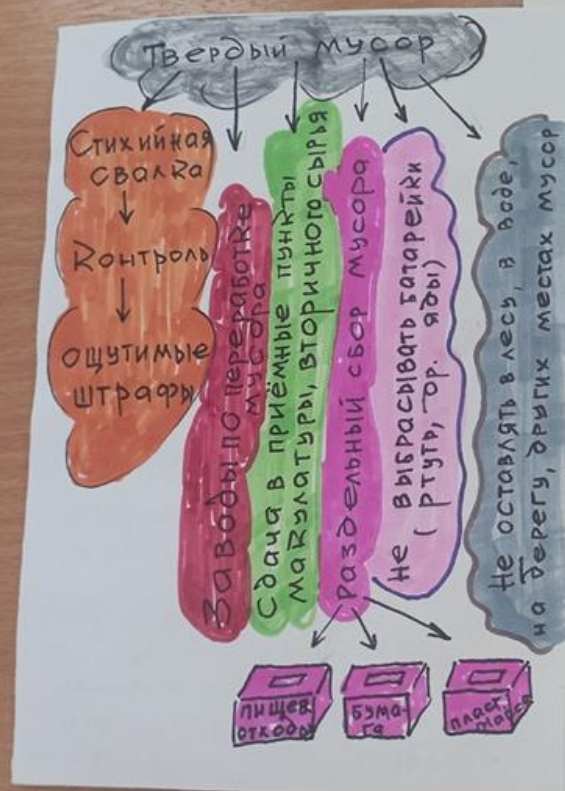 Твердый мусор
Стихийная
свалка
Контроль
ощутимые
штрафы
Заводы по переработке
мусора
Сдача в приёмные пункты
макулатуры, вторичного сырья
раздельный сбор мусора
Не выбрасывать батарейки
(ртуть, др. яды)
Не оставлять в лесу, в воде,
на берегу, других местах мусор
пищев.
отходы
бума-
га
пласт